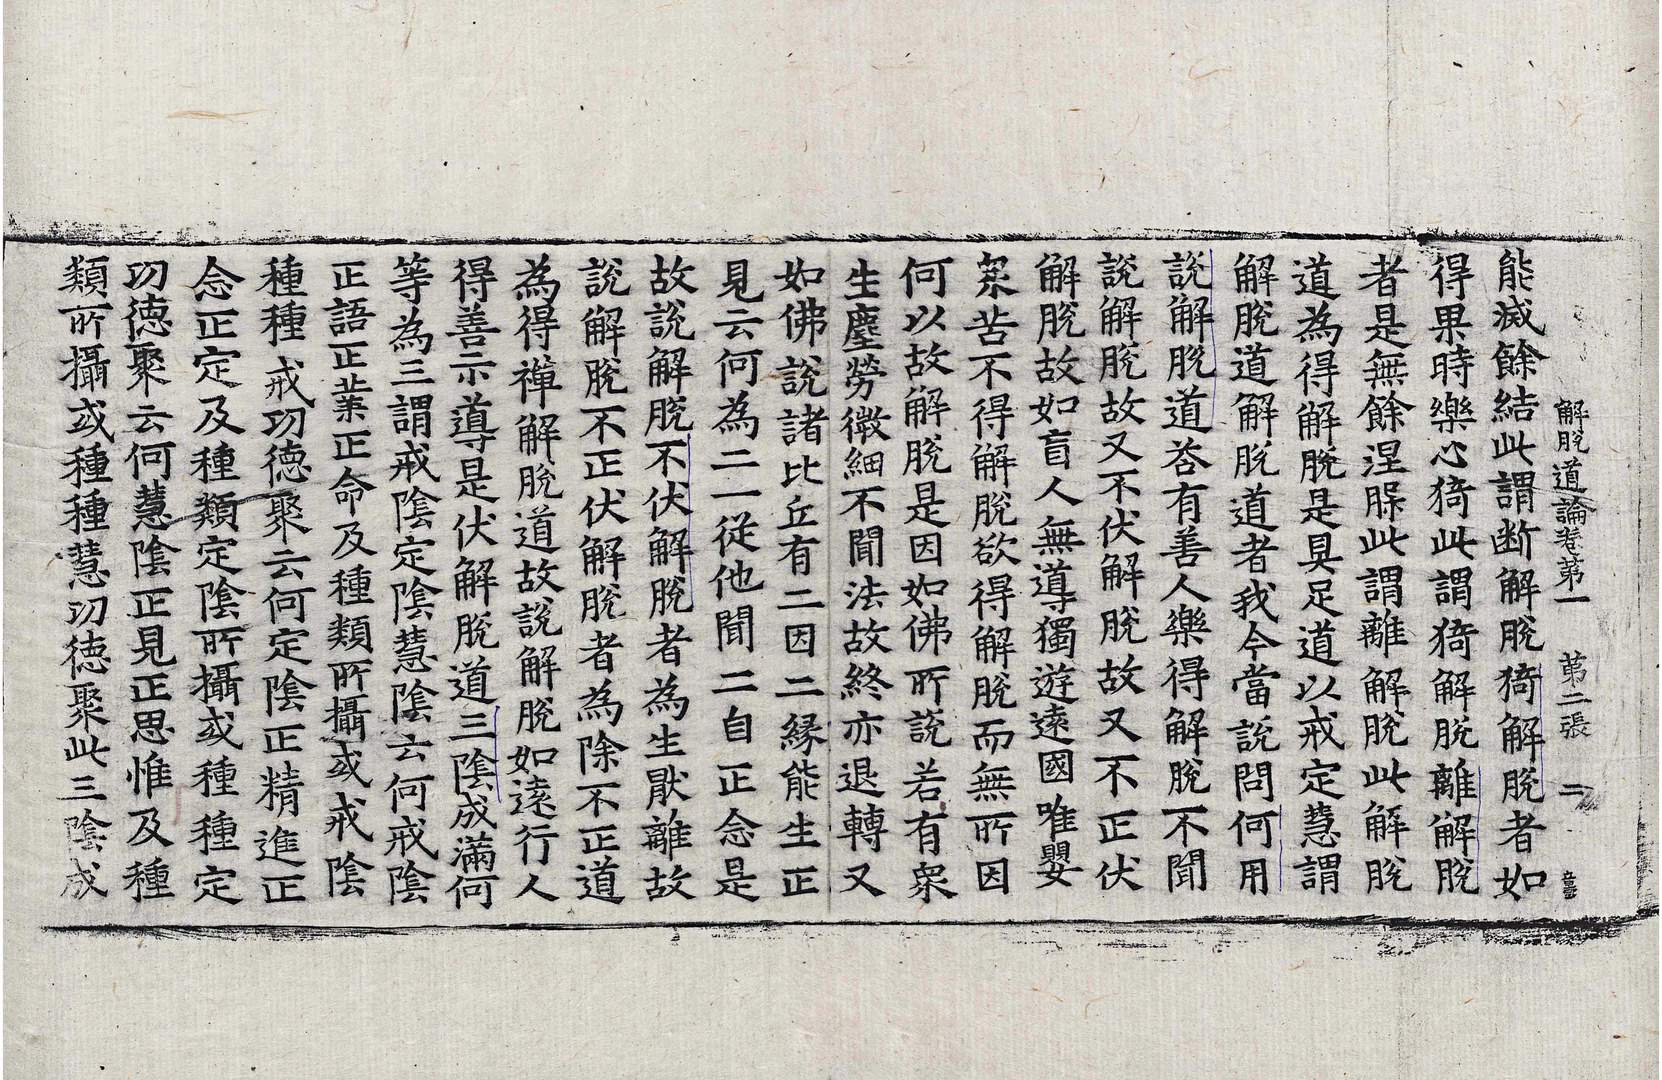 解脫道論卷第一 第二張 二
能滅餘結此謂断解脫猗解脫者如
得果時樂心猗此謂猗解脫離解脫
者是無餘涅槃此謂離解脫此解脫
道為得解脫是具足道以戒定慧謂
解脫道解脫道者我今當說問何用
說解脫道荅有善人樂得解脫不聞
說解脫故又不伏解脫故又不正伏
解脫故如盲人無導獨遊遠國唯嬰
衆苦不得解脫欲得解脫而無所因
何以故解脫是因如佛所說若有衆
生塵勞微細不聞法故終亦退轉又
如佛說諸比丘有二因二縁能生正
見云何為二一從他聞二自正念是
故說解脫不伏解脫者為生厭離故
說解脫不正伏解脫者為除不正道
為得禪解脫道故說解脫如遠行人
得善示導是伏解脫道三陰成滿何
等為三謂戒陰定陰慧陰云何戒陰
正語正業正命及種類所攝或戒陰
種種戒功德聚云何定陰正精進正
念正定及種類定陰所攝或種種定
功德聚云何慧陰正見正思惟及種
類所攝或種種慧功德聚此三陰成